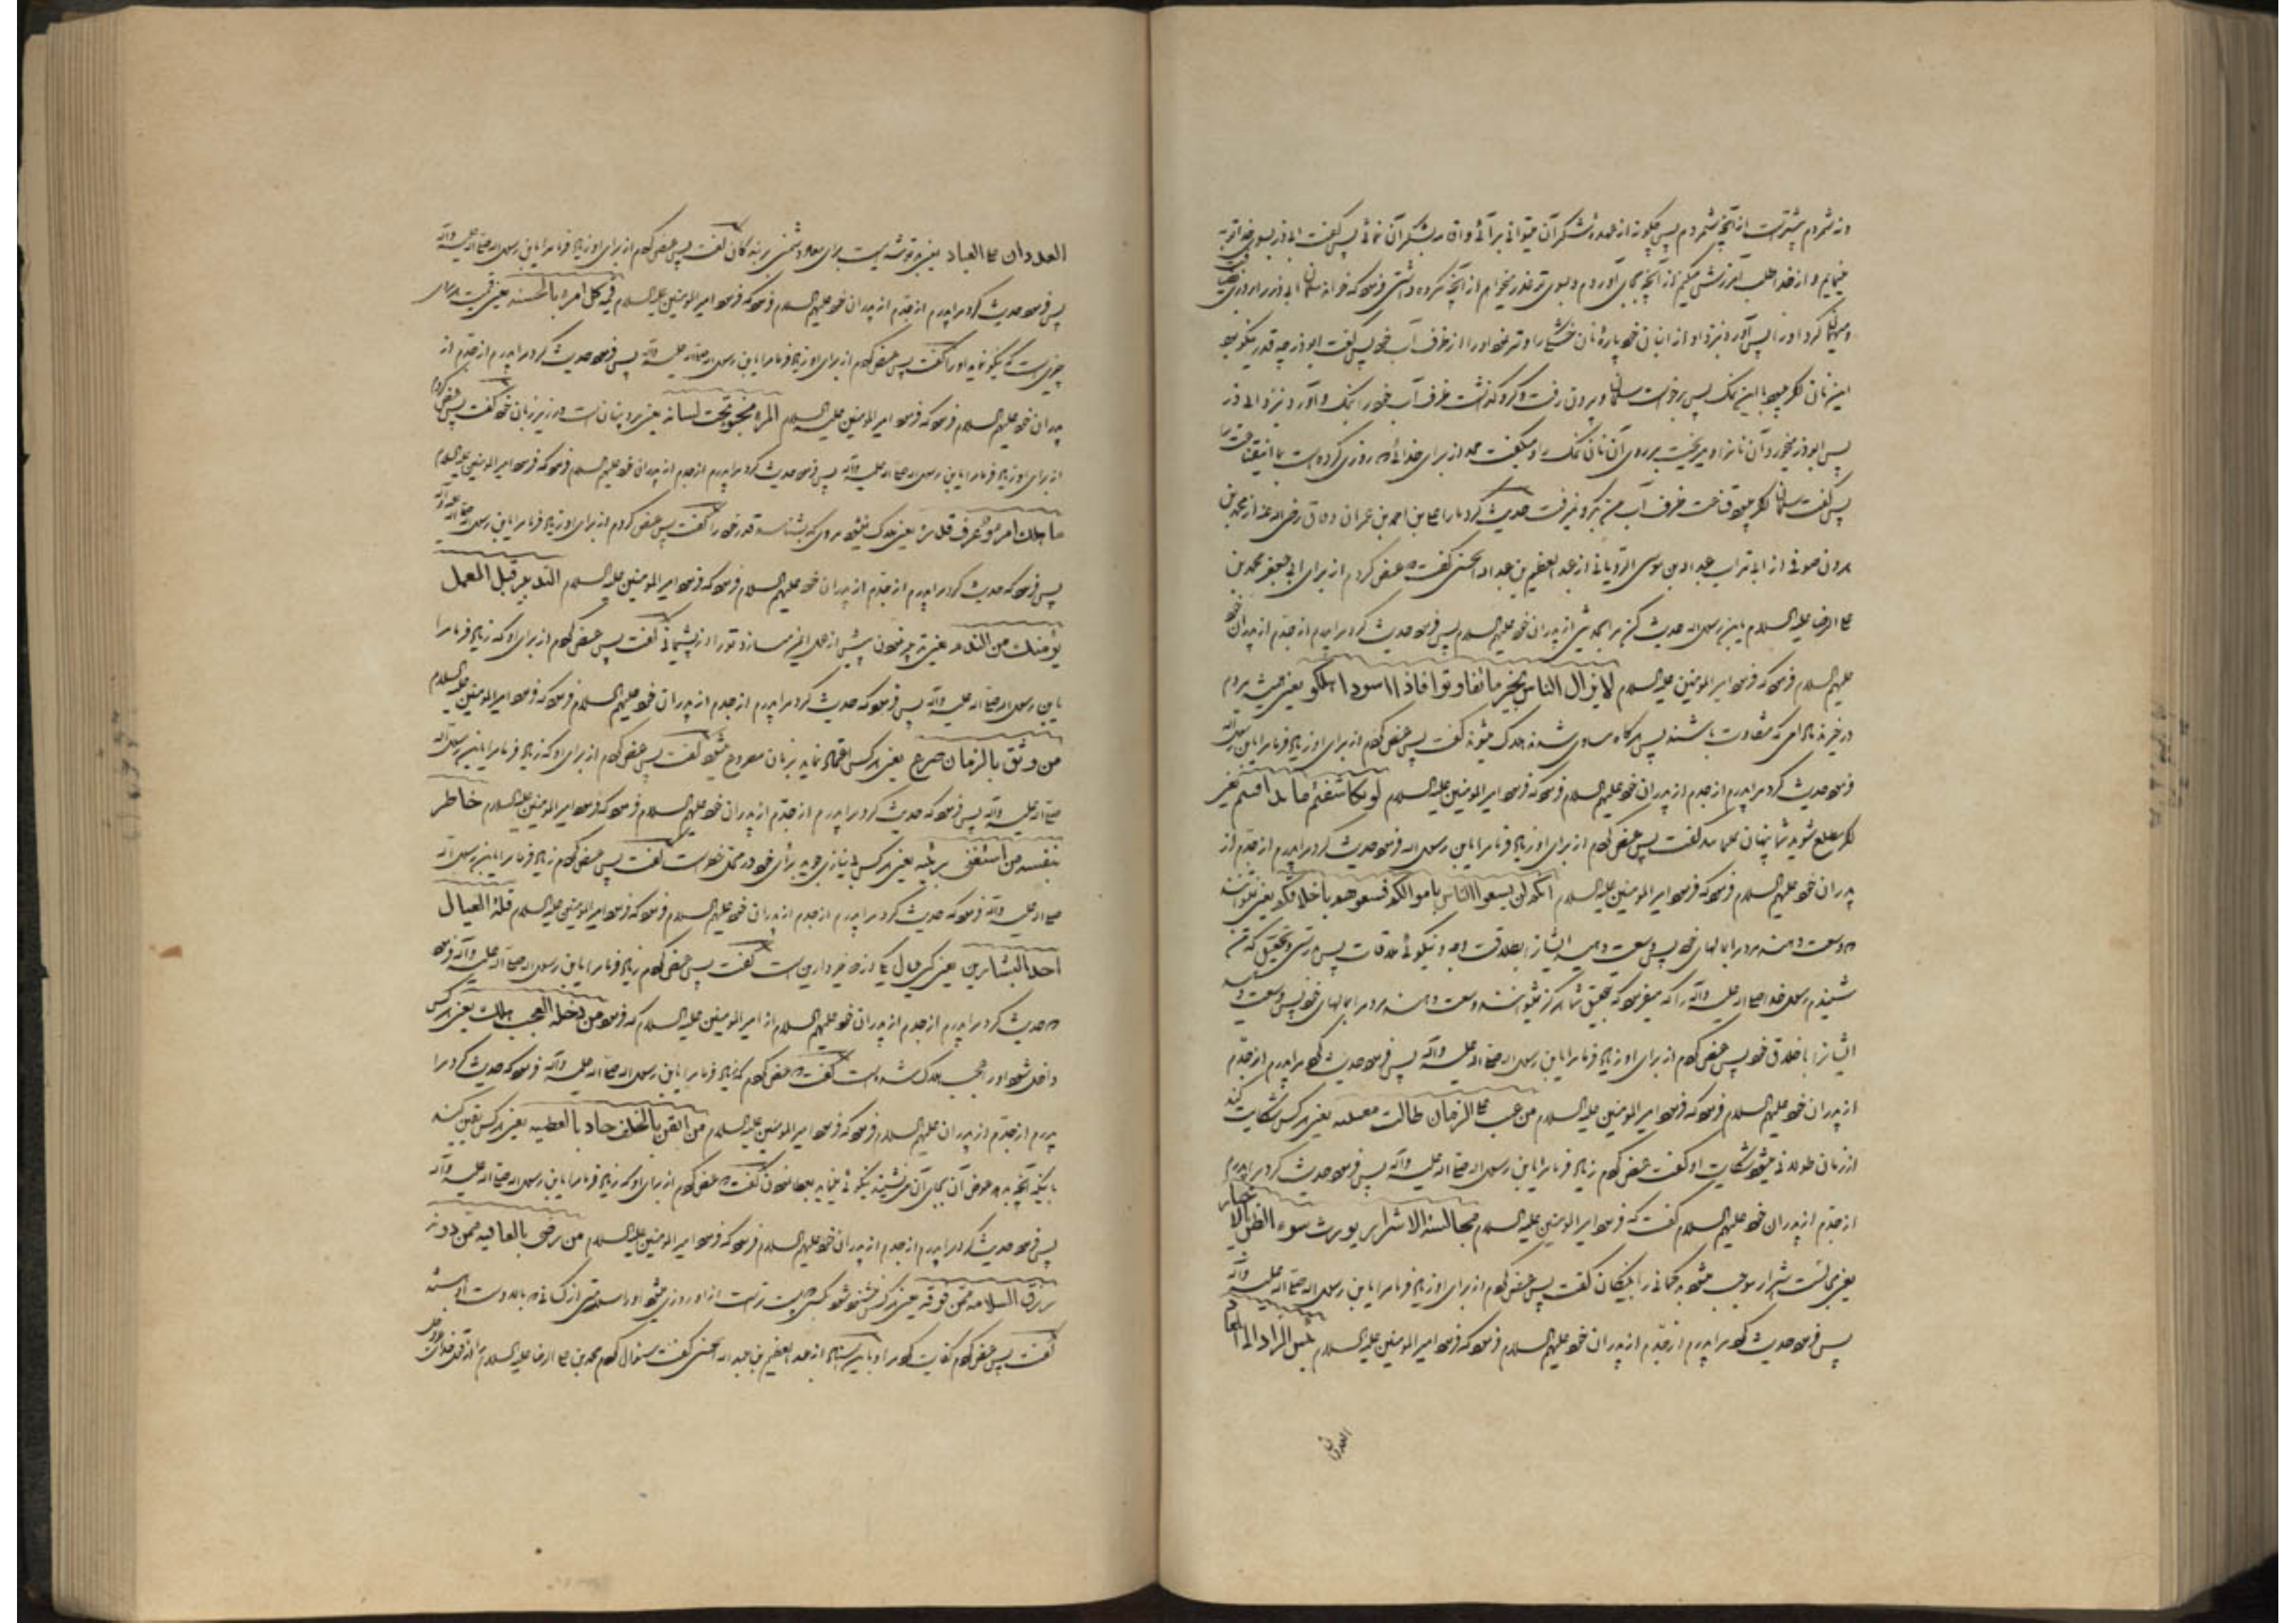 ونه شمردم بیشتر است از آنچه شمردم پس چگونه از عهده شکر آن میتوانی برآئی پس گفت ابوذر بسوی خدا توبه
مینمایم و از خدا طلب آمرزش میکنم از آنچه بجای آوردم و بسوی تو عذر میخواهم از آنچه مکروه داشتی فرمود که خواند سلمان ابی ذر را روزی
ومهمان کرد او را پس آورد نزد او از انبان خود پاره نان خشکی را و تر نمود او را از ظرف آب خود پس گفت ابوذر چه قدر نیکو بود
این نان اگر میبود با این نمک پس برخواست سلمان و بیرون رفت و گرو گذاشت ظرف آب خود را بنمک و آورد نزد ابی ذر
پس ابوذر میخورد آن نان را و میریخت بر روی آن نان نمک را و میگفت حمد از برای خدائی که روزی کرده است بما این قناعت را
پس گفت سلمان اگر میبود قناعت ظرف آب من بگرو نمیرفت حدیث کرد ما را علی بن احمد بن عمران دقاق رضی الله عنه از محمد بن
هرون صوفی از ابی تراب عبد الله بن موسی الرویانی از عبد العظیم بن عبد الله الحسنی گفت که عرض کردم از برای ابی جعفر محمد بن
علی الرضا علیه السلام یابن رسول الله حدیث کن مرا بحدیثی از پدران خود علیهم السلام پس فرمود حدیث کرد مرا پدرم از جدم از پدران خود
علیهم السلام فرمود که فرمود امیر المومنین علیه السلام لا یزال الناس بخیر ما تفاوتوا فاذا استووا هلکوا یعنی همیشه مردم
در خیرند مادامی که متفاوت باشند پس هرگاه مساوی شدند هلاک میشوند گفت پس عرض کردم از برای او زیاد فرما مرا یابن رسول الله
فرمود حدیث کرد مرا پدرم از جدم از پدران خود علیهم السلام فرمود که فرمود امیر المومنین علیه السلام لو تکاشفتم ما تدافنتم یعنی
اگر مطلع شوید شما پنهان گفت پس عرض کردم از برای او زیاد فرما مرا یابن رسول الله فرمود حدیث کرد مرا پدرم از جدم از
پدران خود علیهم السلام فرمود که فرمود امیر المومنین علیه السلام انکم لن تسعوا الناس باموالکم فسعوهم باخلاقکم یعنی نتوانید
که وسعت دهید مردم را بمالهای خود پس وسعت دهید ایشان را بطلاقت وجه و نیکوئی ملاقات پس بدرستی و تحقیق که من
شنیدم رسول خدا صلی الله علیه وآله را که میفرمود که بتحقیق شما هرگز نتوانید وسعت دهید مردم را بمالهای خود پس وسعت دهید
ایشان را باخلاق خود پس عرض کردم از برای او زیاد فرما مرا یابن رسول الله صلی الله علیه وآله پس فرمود حدیث کرد مرا پدرم از جدم
از پدران خود علیهم السلام فرمود که فرمود امیر المومنین علیه السلام من عتب علی الزمان طالت معتبته یعنی هرکس شکایت کند
از زمان طولانی میشود شکایت او گفت عرض کردم زیاد فرما مرا یابن رسول الله صلی الله علیه وآله پس فرمود حدیث کرد مرا پدرم
از جدم از پدران خود علیهم السلام گفت که فرمود امیر المومنین علیه السلام مجالسة الاشرار یورث سوء الظن بالاخیار
یعنی مجالست اشرار موجب میشود بدگمانی را بنیکان گفت پس عرض کردم از برای او زیاد فرما مرا یابن رسول الله صلی الله علیه وآله
پس فرمود حدیث کرد مرا پدرم از جدم از پدران خود علیهم السلام فرمود که فرمود امیر المومنین علیه السلام بئس الزاد الی المعاد
العدوان
العدوان علی العباد یعنی بد توشه ایست برای معاد دشمنی بر بندگان گفت پس عرض کردم از برای او زیاد فرما مرا یابن رسول الله صلی الله علیه وآله
پس فرمود حدیث کرد مرا پدرم از جدم از پدران خود علیهم السلام فرمود که فرمود امیر المومنین علیه السلام قیمة کل امرء ما یحسنه یعنی قیمت هر مردی
چیزی است که نیکو نماید او را گفت پس عرض کردم از برای او زیاد فرما مرا یابن رسول الله صلی الله علیه وآله پس فرمود حدیث کرد مرا پدرم از جدم از
پدران خود علیهم السلام فرمود که فرمود امیر المومنین علیه السلام المرء مخبو تحت لسانه یعنی مرد پنهان است در زیر زبان خود گفت پس عرض کردم
از برای او زیاد فرما مرا یابن رسول الله صلی الله علیه وآله پس فرمود حدیث کرد مرا پدرم از جدم از پدران خود علیهم السلام فرمود که فرمود امیر المومنین علیه السلام
ما هلک امرء عرف قدره یعنی هلاک نمیشود مردی که بشناسد قدر خود را گفت پس عرض کردم از برای او زیاد فرما مرا یابن رسول الله صلی الله علیه وآله
پس فرمود که حدیث کرد مرا پدرم از جدم از پدران خود علیهم السلام فرمود که فرمود امیر المومنین علیه السلام التدبیر قبل العمل
یؤمنک من الندم یعنی تدبیر نمودن پیش از عمل ایمن میسازد تو را از پشیمانی گفت پس عرض کردم از برای او که زیاد فرما مرا
یابن رسول الله صلی الله علیه وآله پس فرمود که حدیث کرد مرا پدرم از جدم از پدران خود علیهم السلام فرمود که فرمود امیر المومنین علیه السلام
من وثق بالزمان صرع یعنی هرکس اعتماد نماید بزمان مصروع میشود گفت پس عرض کردم از برای او که زیاد فرما مرا یابن رسول الله
صلی الله علیه وآله پس فرمود که حدیث کرد مرا پدرم از جدم از پدران خود علیهم السلام فرمود که فرمود امیر المومنین علیه السلام خاطر
بنفسه من استغنی برئیه یعنی هرکس بی نیازی جوید برأی خود در محل خطر است گفت پس عرض کردم زیاد فرما مرا یابن رسول الله
صلی الله علیه وآله فرمود که حدیث کرد مرا پدرم از جدم از پدران خود علیهم السلام فرمود که فرمود امیر المومنین علیه السلام قلة العیال
احد الیسارین یعنی کمی عیال یکی از دو است گفت پس عرض کردم زیاد فرما مرا یابن رسول الله صلی الله علیه وآله فرمود
که حدیث کرد مرا پدرم از جدم از پدران خود علیهم السلام از امیر المومنین علیه السلام که فرمود من دخله العجب هلک یعنی هرکس
داخل شود او را عجب هلاک شده است گفت که عرض کردم که زیاد فرما مرا یابن رسول الله صلی الله علیه وآله فرمود که حدیث کرد مرا
پدرم از جدم از پدران علیهم السلام فرمود که فرمود امیر المومنین علیه السلام من ایقن بالخلف جاد بالعطیه یعنی هرکس یقین کند
باینکه آنچه بدهد عوض آن بجای آن می نشیند نیکوئی مینماید بعطا نمودن گفت که عرض کردم از برای او که زیاد فرما مرا یابن رسول الله صلی الله علیه وآله
پس فرمود حدیث کرد مرا پدرم از جدم از پدران خود علیهم السلام فرمود که فرمود امیر المومنین علیه السلام من رضی بالعافیه ممن دونه
رزق السلامه ممن فوقه یعنی هرکس خشنود شود کسی که پست تر است از او روزی میشود او را سلامتی از کسانی که بالادست او باشند
گفت پس عرض کردم کفایت کرد مرا و باین اسناد از عبد العظیم بن عبد الله الحسنی گفت سئوال کردم محمد بن علی الرضا علیه السلام را از قول خدای عز وجل